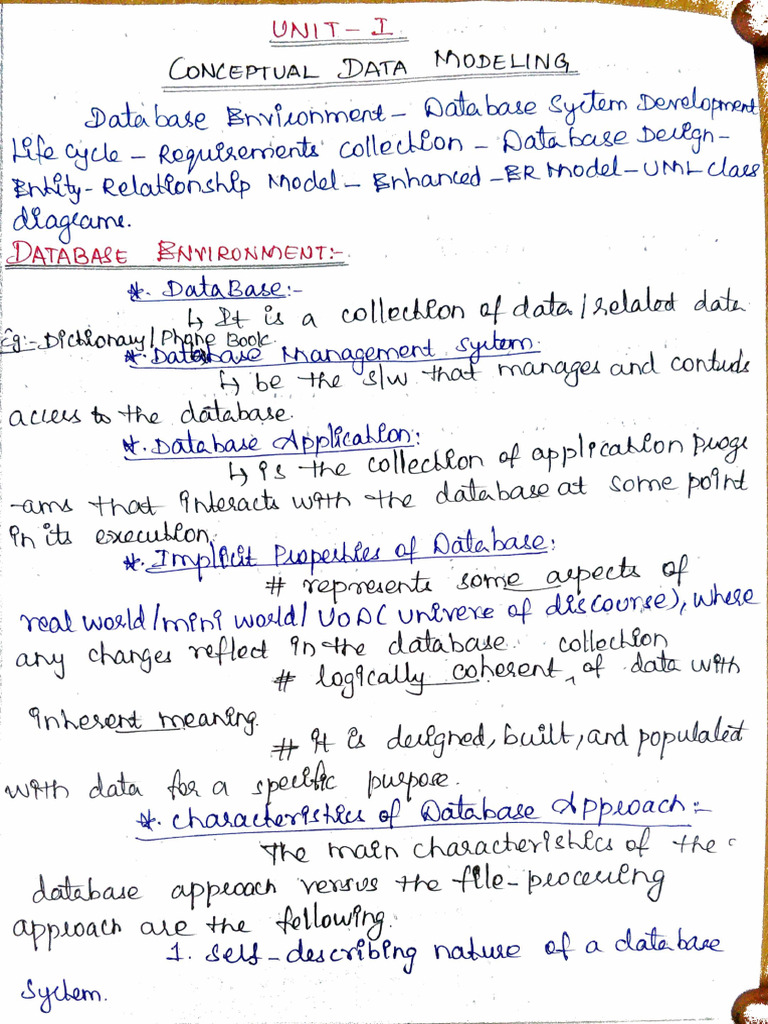 UNIT - I
CONCEPTUAL DATA MODELING
Database Environment - Database System Development
Life Cycle - Requirements collection - Database Design -
Entity - Relationship Model - Enhanced - ER Model - UML Class
diagrams.
DATABASE ENVIRONMENT:-
*. DataBase:-
↳ It is a collection of data/related data
Eg:- Dictionary/Phone Book.
*. Database Management System.
↳ be the s/w that manages and controls
access to the database.
*. Database Application:
↳ is the collection of application progr
-ams that interacts with the database at some point
in its execution.
*. Implicit Properties of Database:
# represents some aspects of
real world/mini world/UoD( univere of discourse), where
any changes reflect in the database.
# logically coherent ‸collection of data with
inherent meaning.
# it is designed, built, and populated
with data for a specific purpose.
*. Characteristics of Database Approach:-
The main characteristics of the
database approach versus the file-processing
approach are the following.
1. Self-describing nature of a database
System.